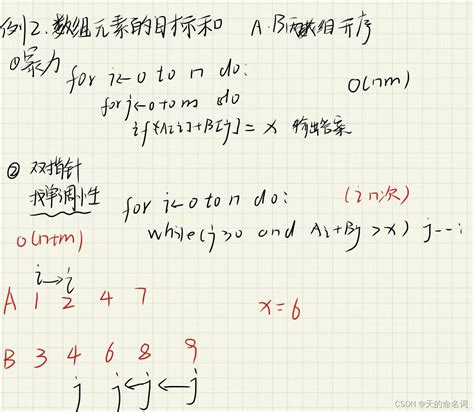 例2.数组元素的目标和 A.B两数组升序
①暴力
for i←0 to n do:
for j←0 to m do O(nm)
if A[i]+B[j]=x 输出答案
②双指针
找单调性
for i←0 to n do: (i n次)
O(n+m)
while(j≥0 and Ai+Bj>x) j--;
i→i
A 1 2 4 7 x=6
B 3 4 6 8 9
j j←j←j
CSDN @天的命名词